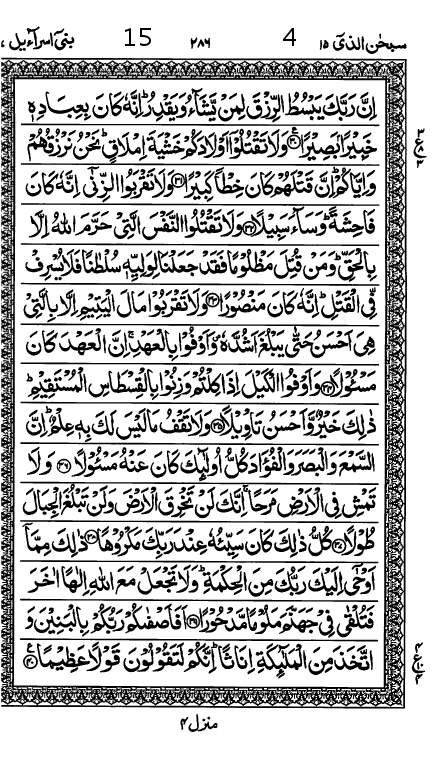 سبحٰن الذیٓ ۱۵ 4 ۲۸۶ 15 بنیٓ اسرآءیل ۱۷
اِنَّ رَبَّكَ يَبْسُطُ الرِّزْقَ لِمَنْ يَّشَآءُ وَيَقْدِرُ ؕ اِنَّهٗ كَانَ بِعِبَادِهٖ
خَبِيْرًۢا بَصِيْرًا ۳۰ وَلَا تَقْتُلُوْۤا اَوْلَادَكُمْ خَشْيَةَ اِمْلَاقٍ ؕ نَحْنُ نَرْزُقُهُمْ
وَاِيَّاكُمْ ؕ اِنَّ قَتْلَهُمْ كَانَ خِطْاً كَبِيْرًا ۳۱ وَلَا تَقْرَبُوا الزِّنٰٓى اِنَّهٗ كَانَ
فَاحِشَةً ؕ وَسَآءَ سَبِيْلًا ۳۲ وَلَا تَقْتُلُوا النَّفْسَ الَّتِيْ حَرَّمَ اللّٰهُ اِلَّا
بِالْحَقِّ ؕ وَمَنْ قُتِلَ مَظْلُوْمًا فَقَدْ جَعَلْنَا لِوَلِيِّهٖ سُلْطٰنًا فَلَا يُسْرِفْ
فِّي الْقَتْلِ ؕ اِنَّهٗ كَانَ مَنْصُوْرًا ۳۳ وَلَا تَقْرَبُوْا مَالَ الْيَتِيْمِ اِلَّا بِالَّتِيْ
هِيَ اَحْسَنُ حَتّٰى يَبْلُغَ اَشُدَّهٗ ۪ وَاَوْفُوْا بِالْعَهْدِ ۚ اِنَّ الْعَهْدَ كَانَ
مَسْـُٔوْلًا ۳۴ وَاَوْفُوا الْكَيْلَ اِذَا كِلْتُمْ وَزِنُوْا بِالْقِسْطَاسِ الْمُسْتَقِيْمِ ؕ
ذٰلِكَ خَيْرٌ وَّاَحْسَنُ تَاْوِيْلًا ۳۵ وَلَا تَقْفُ مَا لَيْسَ لَكَ بِهٖ عِلْمٌ ؕ اِنَّ
السَّمْعَ وَالْبَصَرَ وَالْفُؤَادَ كُلُّ اُولٰٓئِكَ كَانَ عَنْهُ مَسْـُٔوْلًا ۳۶ وَلَا
تَمْشِ فِي الْاَرْضِ مَرَحًا ۚ اِنَّكَ لَنْ تَخْرِقَ الْاَرْضَ وَلَنْ تَبْلُغَ الْجِبَالَ
طُوْلًا ۳۷ كُلُّ ذٰلِكَ كَانَ سَيِّئُهٗ عِنْدَ رَبِّكَ مَكْرُوْهًا ۳۸ ذٰلِكَ مِمَّاۤ
اَوْحٰۤى اِلَيْكَ رَبُّكَ مِنَ الْحِكْمَةِ ؕ وَلَا تَجْعَلْ مَعَ اللّٰهِ اِلٰهًا اٰخَرَ
فَتُلْقٰى فِيْ جَهَنَّمَ مَلُوْمًا مَّدْحُوْرًا ۳۹ اَفَاَصْفٰىكُمْ رَبُّكُمْ بِالْبَنِيْنَ وَ
اتَّخَذَ مِنَ الْمَلٰٓئِكَةِ اِنَاثًا ؕ اِنَّكُمْ لَتَقُوْلُوْنَ قَوْلًا عَظِيْمًا ۴۰ ع
منزل ۴